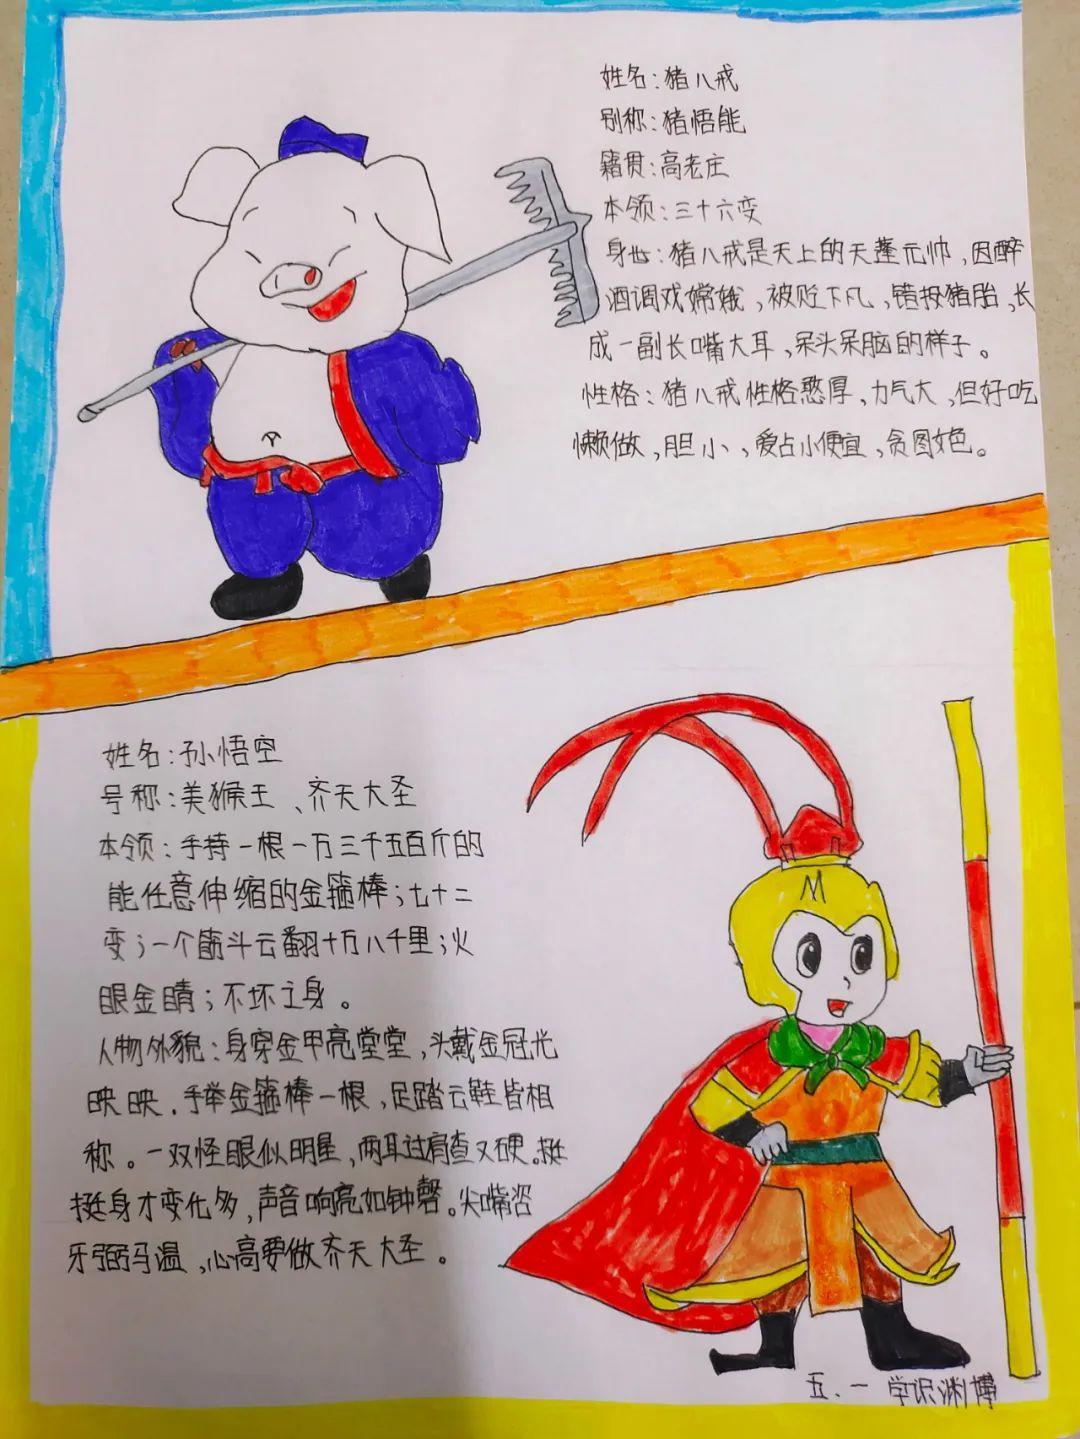 姓名：猪八戒
别称：猪悟能
籍贯：高老庄
本领：三十六变
身世：猪八戒是天上的天蓬元帅，因醉
酒调戏嫦娥，被贬下凡，错投猪胎，长
成一副长嘴大耳，呆头呆脑的样子。
性格：猪八戒性格憨厚，力气大，但好吃
懒做，胆小，爱占小便宜，贪图女色。
姓名：孙悟空
号称：美猴王、齐天大圣
本领：手持一根一万三千五百斤的
能任意伸缩的金箍棒；七十二
变；一个筋斗云翻十万八千里；火
眼金睛；不坏之身。
人物外貌：身穿金甲亮堂堂，头戴金冠光
映映．手举金箍棒一根，足踏云鞋皆相
称。一双怪眼似明星，两耳过肩查又硬。挺
挺身才变化多，声音响亮如钟磬。尖嘴咨
牙弼马温，心高要做齐天大圣。
五．一 学识渊博
M